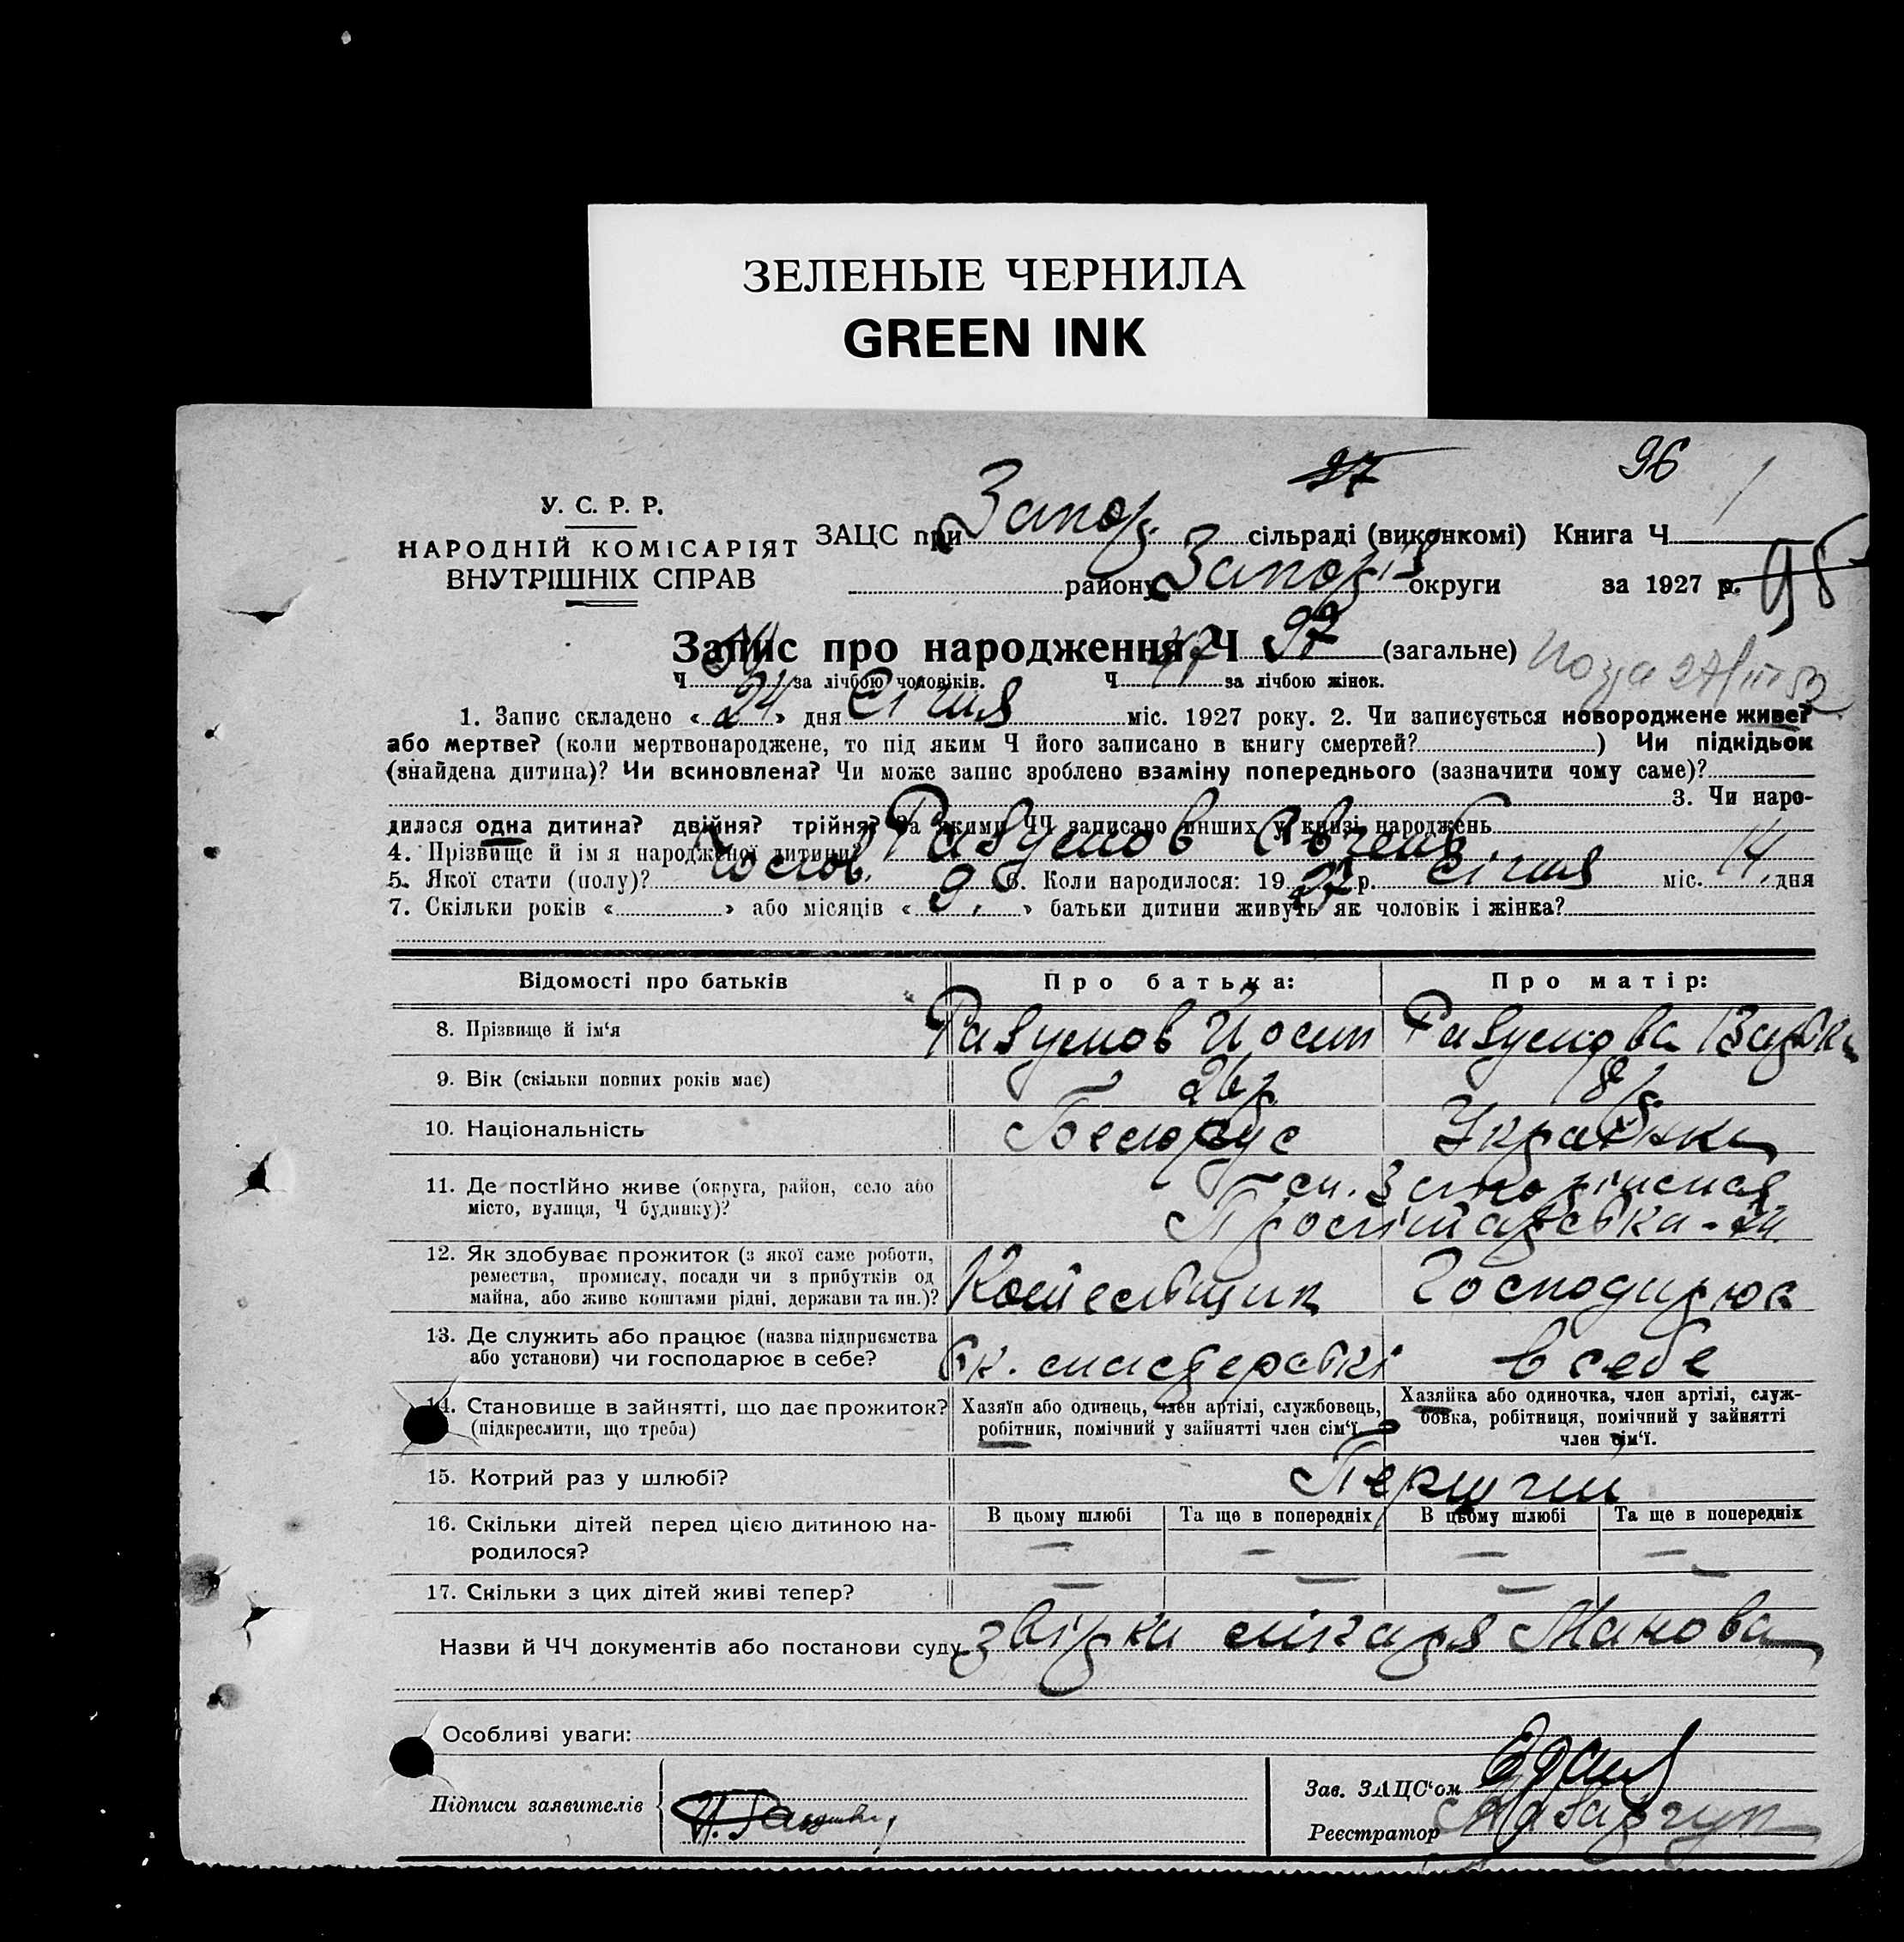 ЗЕЛЕНЫЕ ЧЕРНИЛА
GREEN INK
27 96
У. С. Р. Р.
НАРОДНІЙ КОМІСАРІЯТ
ВНУТРІШНІХ СПРАВ
ЗАЦС при Запор. сільраді (виконкомі) Книга Ч
району Запоріз округи за 1927 р. 98
Запис про народження Ч 97 (загальне)
Ч 50 за лічбою чоловіків. Ч 47 за лічбою жінок.
1. Запис складено « 24 » дня Січня міс. 1927 року. 2. Чи записується новороджене живе?
або мертве? (коли мертвонароджене, то під яким Ч його записано в книгу смертей?) Чи підкідьок
(знайдена дитина)? Чи всиновлена? Чи може запис зроблено взаміну попереднього (зазначити чому саме)?
3. Чи наро-
дилася одна дитина? двійня? трійня? За якими ЧЧ записано инших у книзі народжень
4. Прізвище й ім я народженої дитини? Разумов Євгень
5. Якої стати (полу)? чолов. 6. Коли народилося: 1927 р. січня міс. 14. дня
7. Скільки років « » або місяців « 9. » батьки дитини живуть як чоловік і жінка?
Відомості про батьків Про батька: Про матір:
8. Прізвище й ім‘я Разумов Йосип Разумова
9. Вік (скільки повних років має) 26 р. 18 р.
10. Національність Белорус Українка
11. Де постійно живе (округа, район, село або
місто, вулиця, Ч будинку)?
12. Як здобуває прожиток (з якої саме роботи,
ремества, промислу, посади чи з прибутків од
майна, або живе коштами рідні, держави та ин.)? Господарює
13. Де служить або працює (назва підприємства
або установи) чи господарює в себе? в себе
14. Становище в зайнятті, що дає прожиток?
(підкреслити, що треба)
Хазяїн або одинець, член артілі, службовець,
робітник, помічний у зайнятті член сім‘ї.
Хазяйка або одиночка, член артілі, служ-
бовка, робітниця, помічний у зайнятті
член сім‘ї.
15. Котрий раз у шлюбі? Перший
16. Скільки дітей перед цією дитиною на-
родилося?
В цьому шлюбі Та ще в попередніх В цьому шлюбі Та ще в попередніх
— — — —
17. Скільки з цих дітей живі тепер? — — — —
Назви й ЧЧ документів або постанови суду звідка лікаря
Особливі уваги:
Підписи заявителів
Зав. ЗАЦС‘ом
Реєстратор